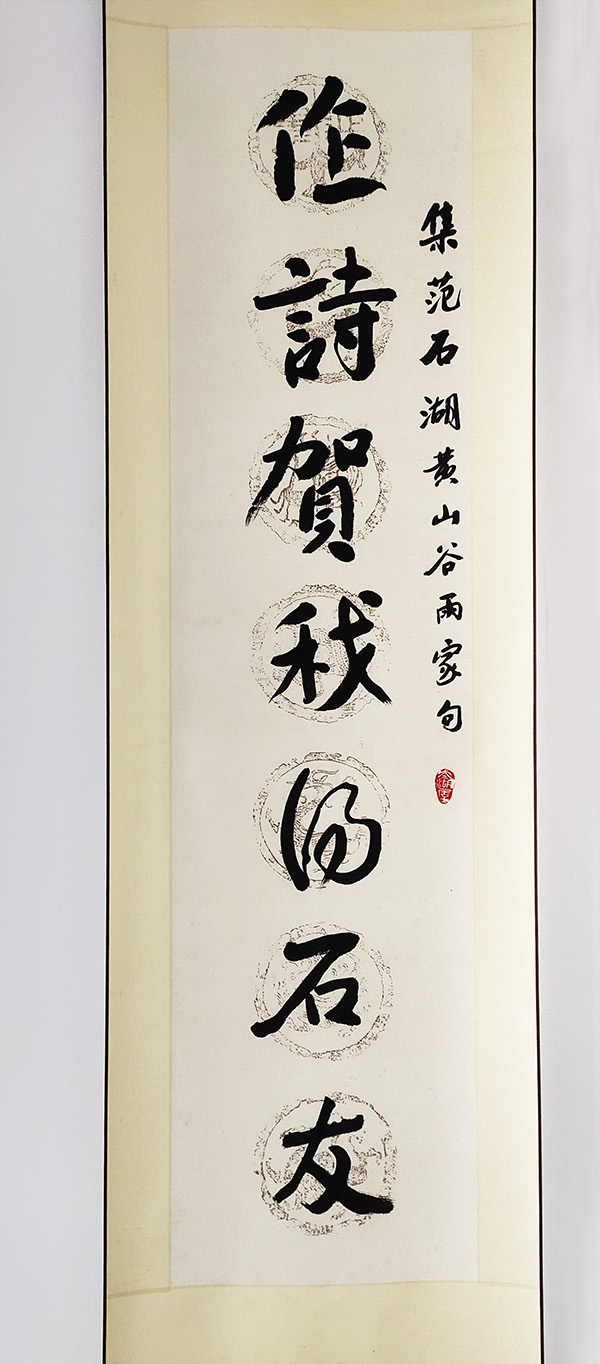 集范石湖黄山谷兩家句
作詩賀我得石友